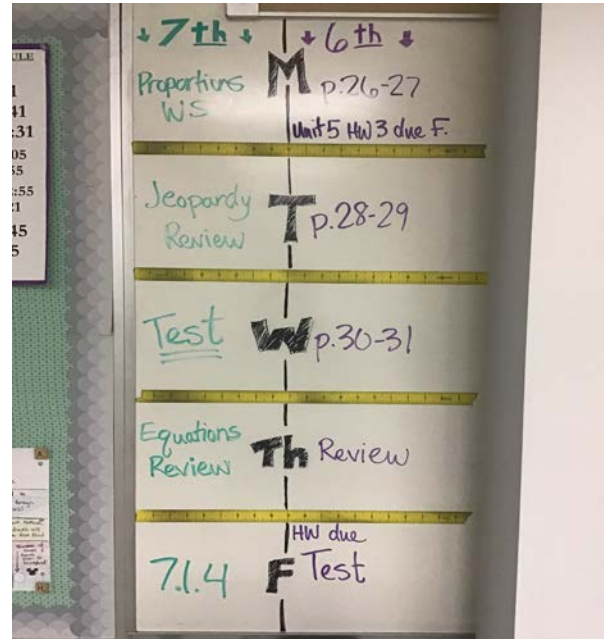 7th 6th
Proportions WS
M
p.26-27
Unit 5 HW 3 due F.
Jeopardy Review
T
p.28-29
Test
W
p.30-31
Equations Review
Th
Review
7.1.4
F
HW due
Test